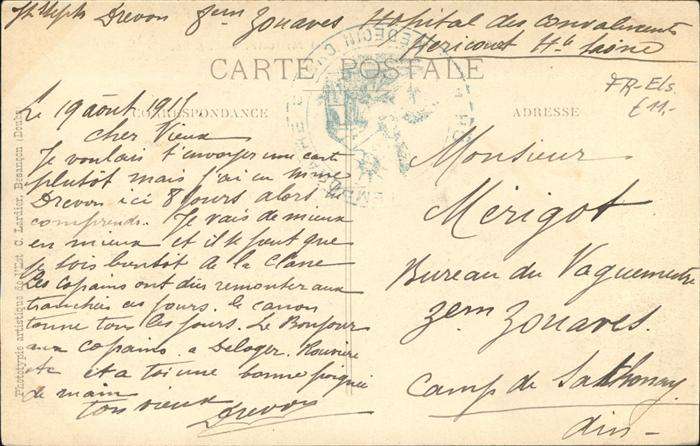 Drevon 8em Zouaves Hopital des convalescents
Héricourt Hte Saône
CARTE POSTALE
FR-Els.
€11,-
CORRESPONDANCE
ADRESSE
Le 19 août 1915
cher Vieux
Je voulais t'envoyer une carte
plutôt mais j'ai eu mme
Drevon ici 8 jours alors
comprends. Je vais de mieux
en mieux et il se peut que
je sois bientot de la Classe
Les copains ont du remonter aux
tranchées ces jours. le canon
tonne tous les jours. Le Bonjour
aux copains. a Deloger. Rouviere
etc et a toi une bonne poignée
de main
ton vieux
Drevon
Monsieur
Mérigot
Bureau du Vaguemestre
3em Zouaves
Camp de Sathonay
Ain
Phototypie artistique de l'Edt. C. Lardier, Besançon (Doubs)
MEDECIN